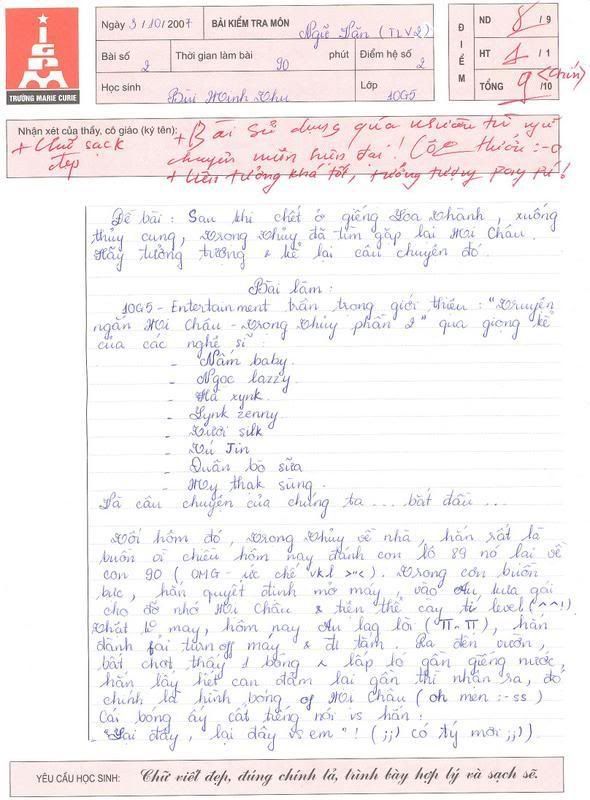 Ngày 3/10/2007
BÀI KIỂM TRA MÔN Ngữ Văn (TLV2)
Bài số 2
Thời gian làm bài 90 phút
Điểm hệ số 2
Học sinh Bùi Minh Thu
Lớp 10G5
ĐIỂM
ND 8 /9
HT 1 /1
TỔNG 9 /10 (chín)
TRƯỜNG MARIE CURIE
Nhận xét của thầy, cô giáo (ký tên):
+ Chữ sạch đẹp
+ Bài sử dụng quá nhiều từ ngữ
chuyên môn hiện đại!
+ liên tưởng khá tốt, tưởng tượng pay pú!
Đề bài : Sau khi chết ở giếng Loa Thành , xuống
thủy cung, Trọng Thủy đã tìm gặp lại Mị Châu.
Hãy tưởng tượng & kể lại câu chuyện đó.
Bài làm :
10G5 - Entertainment trân trọng giới thiệu : "Truyện
ngắn Mị Châu - Trọng Thủy phần 2" qua giọng kể
của các nghệ sĩ :
- Nấm baby.
- Ngọc lazzy.
- Hà xynk.
- Lynk zenny.
- Tươi silk
- Tú Jin
- Quân bò sữa
- My thak sùng.
Và câu chuyện của chúng ta ... bắt đầu ...
Tối hôm đó, Trọng Thủy về nhà, hắn rất là
buồn vì chiều hôm nay đánh con lô 89 nó lại về
con 90 ( OMG - ức chế vkl >"<). Trong cơn buồn
bực, hắn quyết định mở máy, vào Au, lừa gái
cho đỡ nhớ Mị Châu & tiện thể cày tí level (^^!)
Nhất là may, hôm nay Au lag lòi (π_π), hắn
đành fải turn off máy & đi tắm. Ra đến vườn,
bất chợt thấy 1 bóng ~ lấp ló gần giếng nước,
hắn lấy hết can đảm lại gần thì nhận ra, đó
chính là hình bóng of Mị Châu ( oh men :-ss )
Cái bóng ấy cất tiếng nói vs hắn:
- "Lại đây, lại đây vs em" ! ( ;;) có tý mới ;;) ).
YÊU CẦU HỌC SINH: Chữ viết đẹp, đúng chính tả, trình bày hợp lý và sạch sẽ.